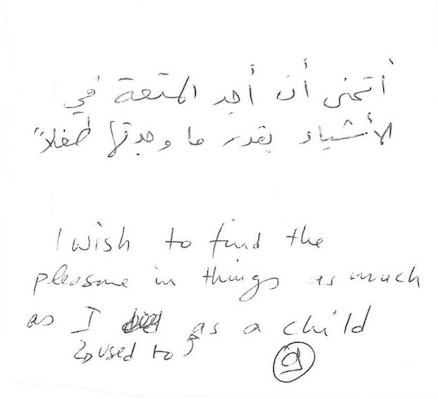 أتمنى أن أجد المتعة في
الأشياء بقدر ما وجدتها طفلاً
I wish to find the
pleasure in things as much
as I as a child
used to
a